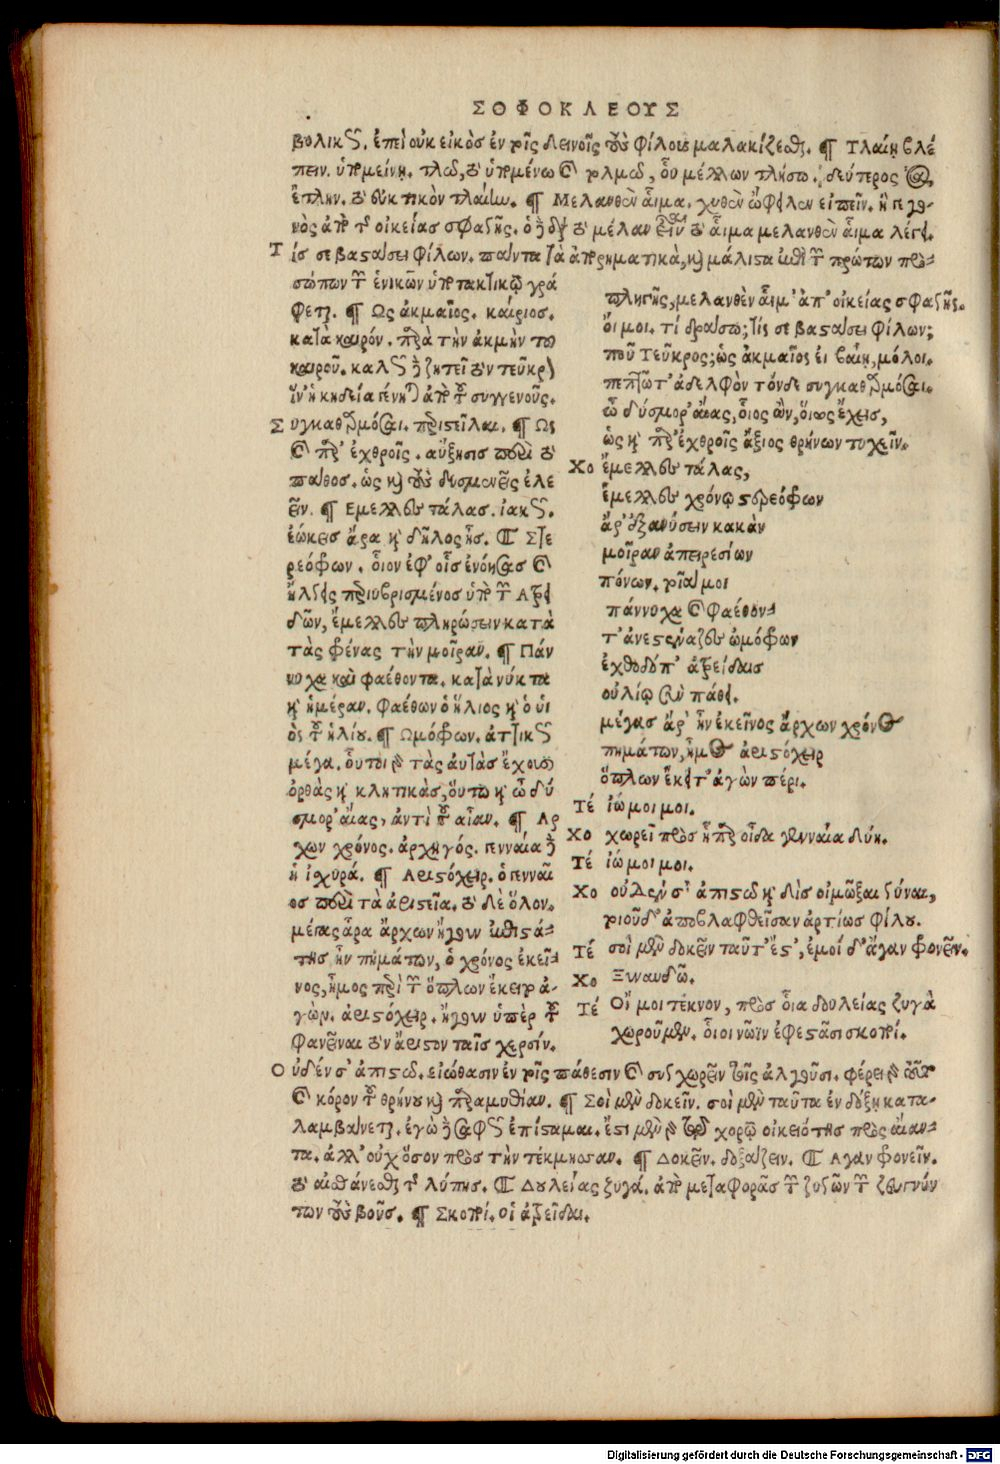 ΣΟΦΟΚΛΕΟΥΣ
βολικῶς. ἐπεὶ οὐκ εἰκὸς ἐν τοῖς δεινοῖς τοὺς φίλους μαλακίζεσθαι. ¶ Τλαίη βλέ
πειν. ὑπομείνῃ. τλῶ, τὸ ὑπομένω καὶ τολμῶ, οὗ μέλλων τλήσω. δεύτερος
ἔτλην. τὸ εὐκτικὸν τλαίην. ¶ Μελανθὲν αἷμα. χυθὲν ὤφειλεν εἰπεῖν. ἢ γεγο-
νὸς ἀπὸ τῆς οἰκείας σφαγῆς. ὁ γὰρ τὸ μέλαν τὸ αἷμα μελανθὲν αἷμα λέγει.
Τίς σε βαστάσει φίλων. πάντα τὰ ἀπορηματικὰ, καὶ μάλιστα ἐπὶ τῶν πρώτων προ-
σώπων τῶν ἑνικῶν ὑποτακτικῷ γρά
φεται. ¶ Ὡς ἀκμαῖος. καίριος.
κατὰ καιρόν. παρὰ τὴν ἀκμὴν τοῦ
καιροῦ. καλῶς δὲ ζητεῖ τὸν τεῦκρον
ἵν' ἡ κηδεία γένηται ἀπὸ τοῦ συγγενοῦς.
Συγκαθαρμόσαι. περιστεῖλαι. ¶ Ὡς
καὶ παρ' ἐχθροῖς. αὔξησις περὶ τὸ
πάθος. ὡς καὶ τοὺς δυσμενεῖς ἐλε
εῖν. ¶ Ἔμελλες τάλας. ἰακῶς.
ἐώκεις ἄρα καὶ δῆλος ἦς. ¶ Στε
ρεόφρων. οἷον ἐφ' οἷς ἐνόησας καὶ
ἤλγεις περιυβρισμένος ὑπὸ τῶν Ἀτρει
δῶν, ἔμελλες πληρώσειν κατὰ
τὰς φρένας τὴν μοῖραν. ¶ Πάν
νυχα καὶ φαέθοντα. κατὰ νύκτα
καὶ ἡμέραν. φαέθων ὁ ἥλιος καὶ ὁ υἱ
ὸς τοῦ ἡλίου. ¶ Ὠμόφρων. ἀττικῶς
μέγα. οὗτοι γὰρ τὰς αὐτὰς ἔχουσι
ὀρθὰς καὶ κλητικὰς, οὕτω καὶ ὦ δύ
σμορ' αἴας, ἀντὶ τοῦ αἶαν. ¶ Ἄρ
χων χρόνος. ἀρχηγός. γενναία δὲ
ἡ ἰσχυρά. ¶ Ἀριστόχειρ. ὁ γενναῖ
ος περὶ τὰ ἀριστεῖα. τὸ δὲ ὅλον.
μέγας ἄρα ἄρχων ἤγουν ἐπιστά-
της ἦν πημάτων, ὁ χρόνος ἐκεῖ-
νος, ἦμος περὶ τῶν ὅπλων ἔκειτο ἀ-
γών. ἀριστόχειρ. ἤγουν ὑπὲρ τοῦ
φανῆναι τὸν ἄριστον ταῖς χερσίν.
πληγῆς, μελανθὲν αἷμ' ἀπ' οἰκείας σφαγῆς.
οἴμοι. τί δράσω; τίς σε βαστάσει φίλων;
ποῦ Τεῦκρος; ὡς ἀκμαῖος εἰ βαίη, μόλοι.
πεπτῶτ' ἀδελφὸν τόνδε συγκαθαρμόσαι.
ὦ δύσμορ' αἴας, οἷος ὢν, οἵως ἔχεις,
ὡς καὶ παρ' ἐχθροῖς ἄξιος θρήνων τυχεῖν.
Χο ἔμελλες τάλας,
ἔμελλες χρόνῳ στερεόφρων
ἄρ' ἐξανύσειν κακὰν
μοῖραν ἀπειρεσίων
πόνων. τοῖά μοι
πάννυχα καὶ φαέθον-
τ' ἀνεστέναζες ὠμόφρων
ἐχθοδόπ' ἀτρείδαις
οὐλίῳ σὺν πάθει.
μέγας ἄρ' ἦν ἐκεῖνος ἄρχων χρόνος
πημάτων, ἦμος ἀριστόχειρ
ὅπλων ἔκειτ' ἀγὼν πέρι.
Τέ ἰώ μοι μοι.
Χο χωρεῖ πρὸς ἧπαρ οἶδα γενναία δύη.
Τέ ἰώ μοι μοι.
Χο οὐδέν σ' ἀπιστῶ καὶ δὶς οἰμῶξαι γύναι,
τοιοῦδ' ἀποβλαφθεῖσαν ἀρτίως φίλου.
Τέ σοὶ μὲν δοκεῖν ταῦτ' ἔστ', ἐμοὶ δ' ἄγαν φρονεῖν.
Χο Ξυναυδῶ.
Τέ Οἴ μοι τέκνον, πρὸς οἷα δουλείας ζυγὰ
χωροῦμεν. οἷοι νῶϊν ἐφεστᾶσι σκοποί.
Οὐδέν σ' ἀπιστῶ. εἰώθασιν ἐν τοῖς πάθεσιν καὶ συγχωρεῖν τοῖς ἀλγοῦσι. φέρει γὰρ τοῦτο
καὶ κόρον τοῦ θρήνου καὶ παραμυθίαν. ¶ Σοὶ μὲν δοκεῖν. σοὶ μὲν ταῦτα ἐν δόξῃ κατα-
λαμβάνεται. ἐγὼ δὲ σαφῶς ἐπίσταμαι. ἔστι μὲν γὰρ τῷ χορῷ οἰκειότης πρὸς αἴαν-
τα. ἀλλ' οὐχ ὅσον πρὸς τὴν τέκμησσαν. ¶ Δοκεῖν. δοξάζειν. ¶ Ἄγαν φρονεῖν.
τὸ αἰσθάνεσθαι τῆς λύπης. ¶ Δουλείας ζυγά. ἀπὸ μεταφορᾶς τῶν ζυγῶν τῶν ζευγνύν
των τοὺς βοῦς. ¶ Σκοποί. οἱ ἀτρεῖδαι.
Digitalisierung gefördert durch die Deutsche Forschungsgemeinschaft - DFG